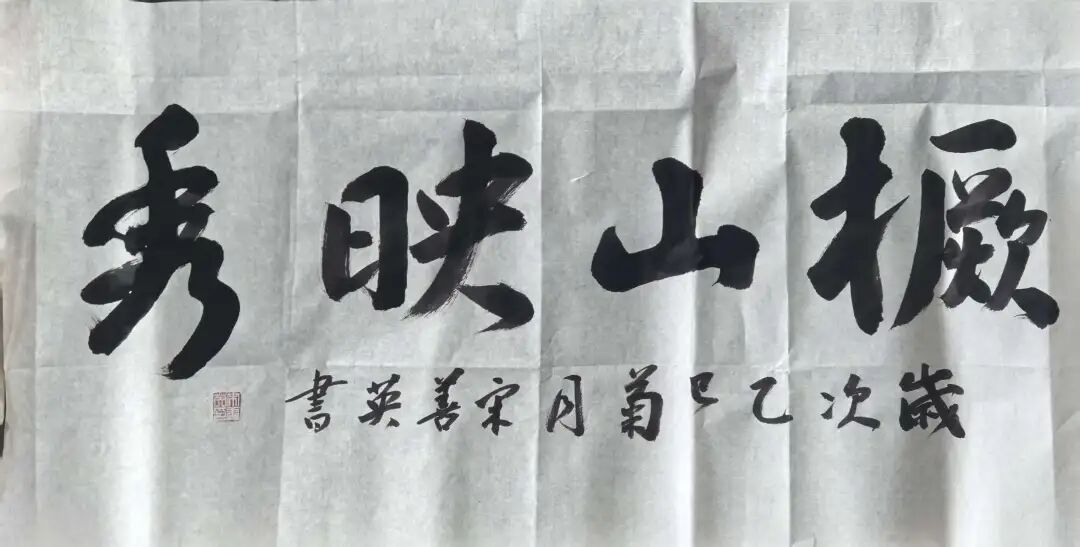 橛山映秀
歲次乙巳菊月宋善英書